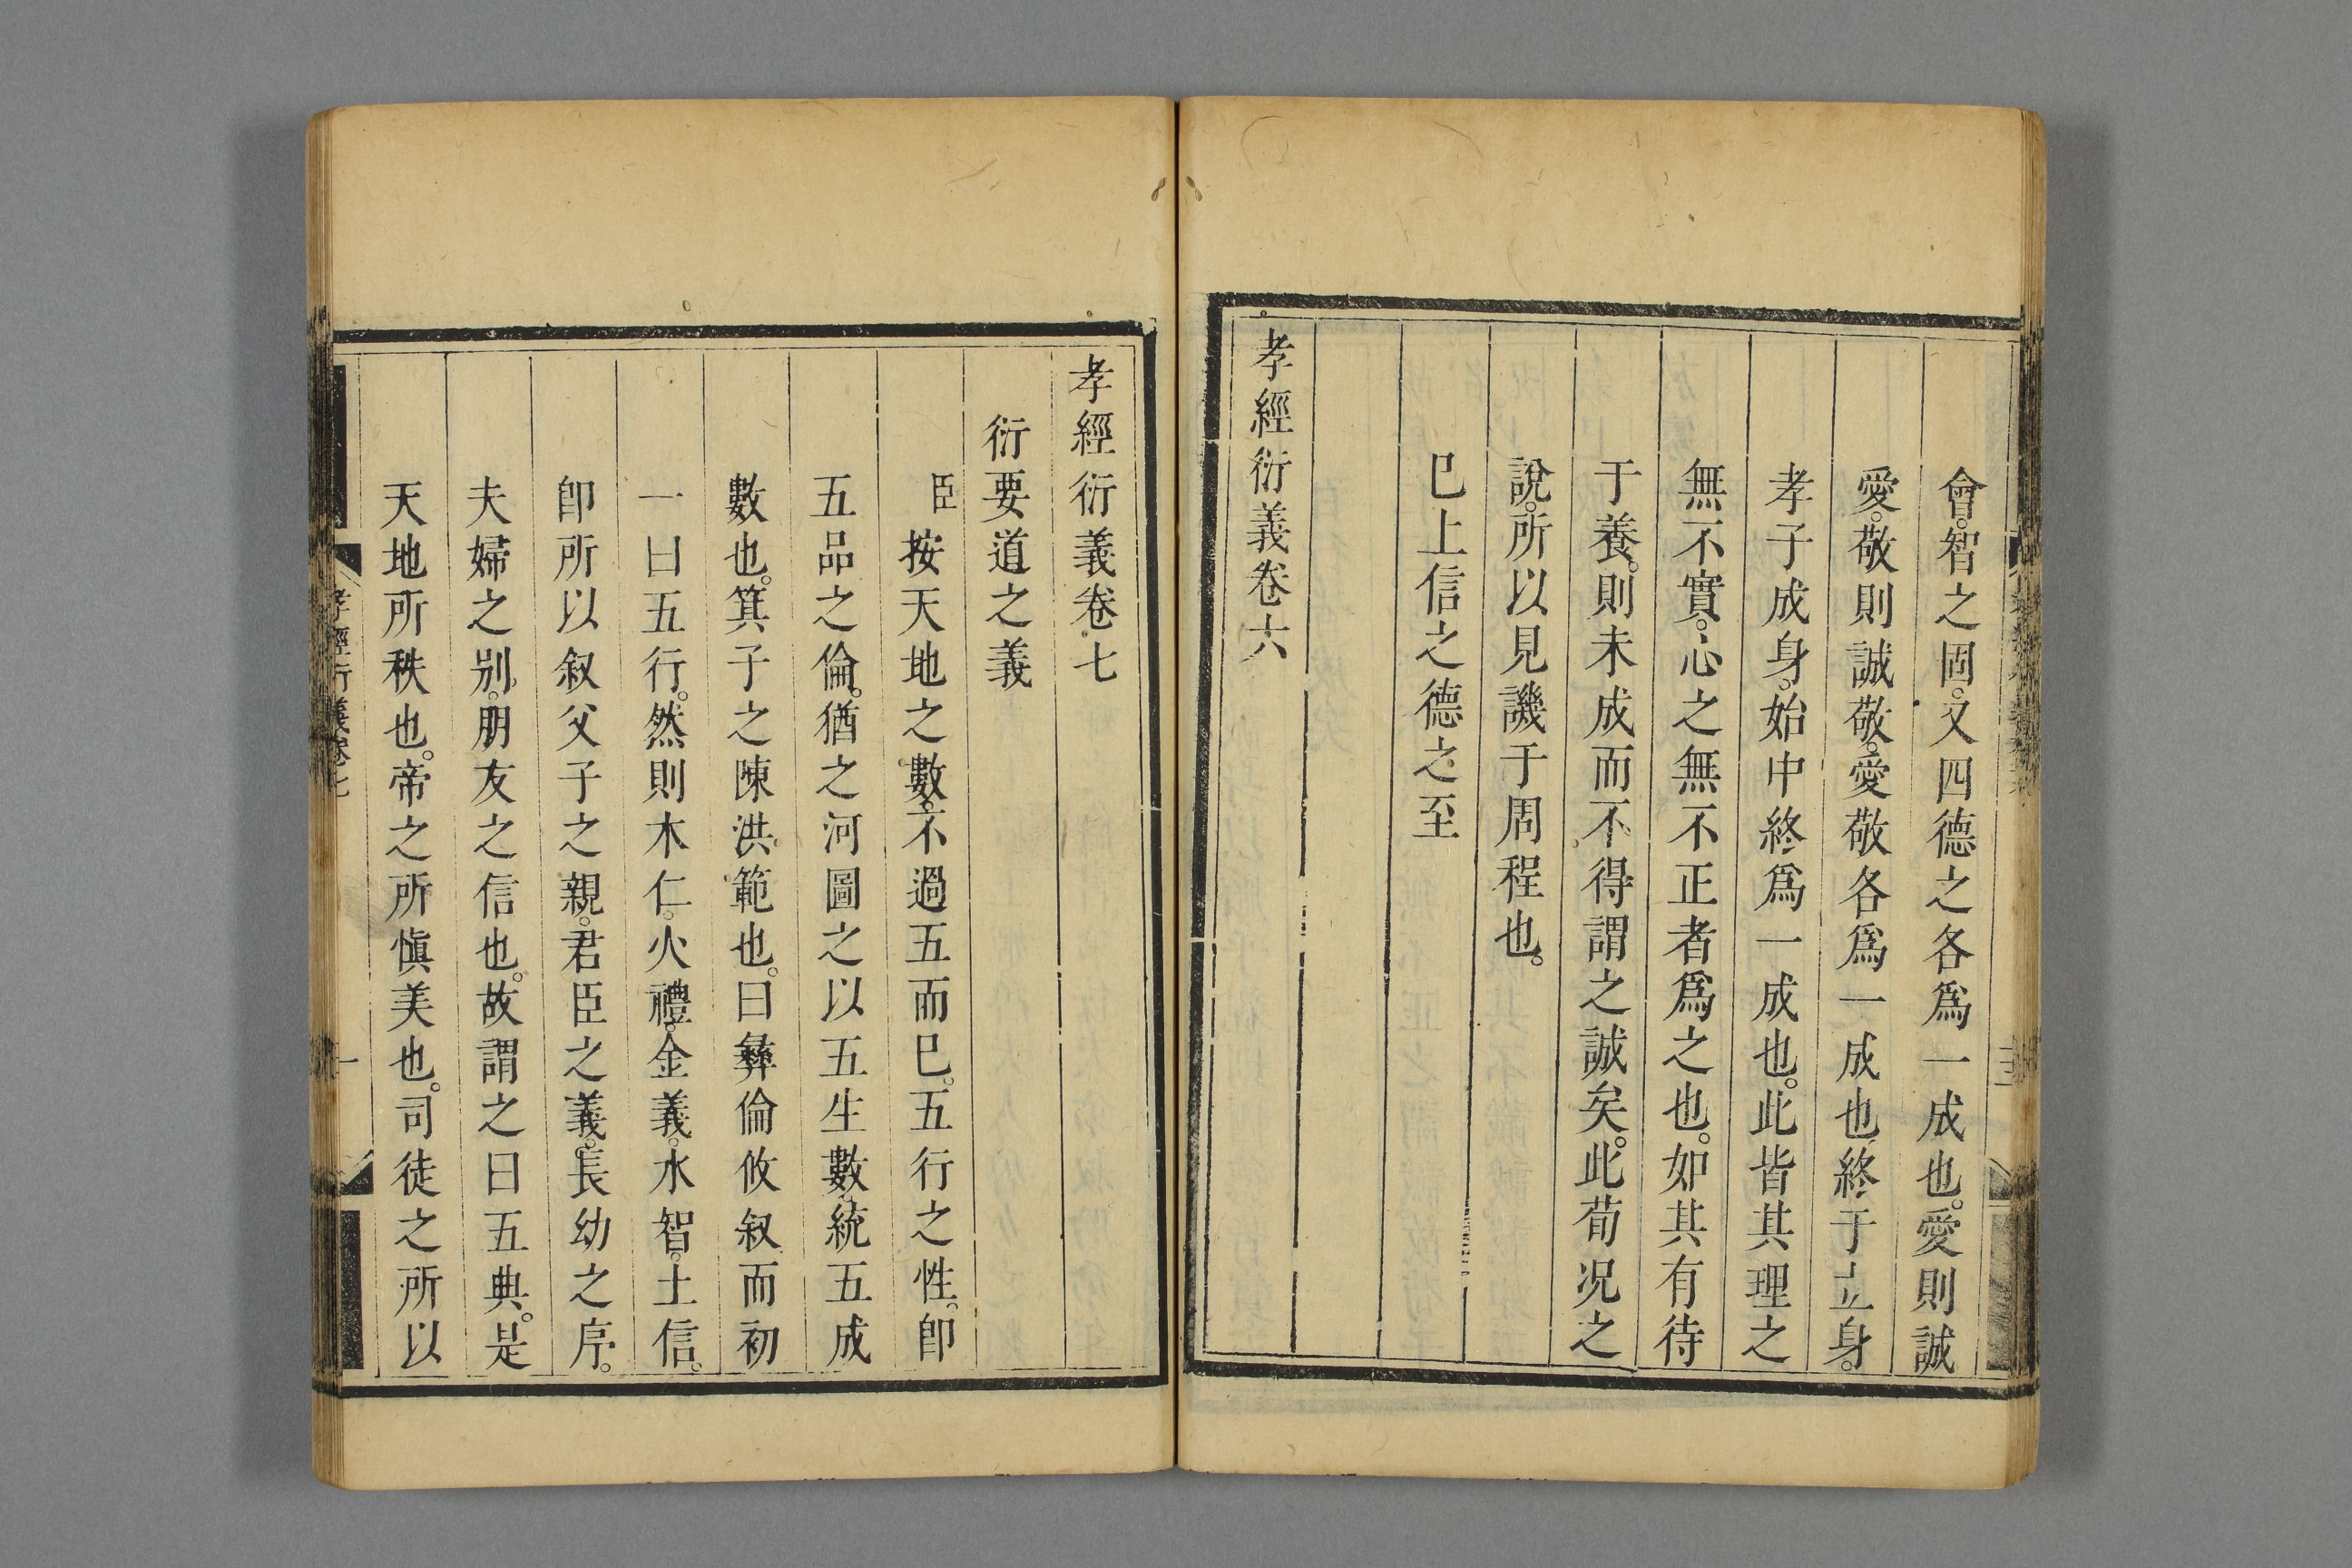 會。智之固。又四德之各爲一成也。愛則誠
愛。敬則誠敬。愛敬各爲一成也。終于立身。
孝子成身。始中終爲一成也。此皆其理之
無不實。心之無不正者爲之也。如其有待
于養。則未成而不得謂之誠矣。此荀況之
說。所以見譏于周程也。
巳上信之德之至
孝經衍義卷六
孝經衍義卷七
衍要道之義
臣按天地之數。不過五而巳。五行之性。卽
五品之倫。猶之河圖之以五生數。統五成
數也。箕子之陳洪範也。曰彝倫攸叙而初
一曰五行。然則木仁。火禮。金義。水智。土信。
卽所以叙父子之親。君臣之義。長幼之序。
夫婦之别。朋友之信也。故謂之曰五典。是
天地所秩也。帝之所愼美也。司徒之所以
孝經衍義卷七
一